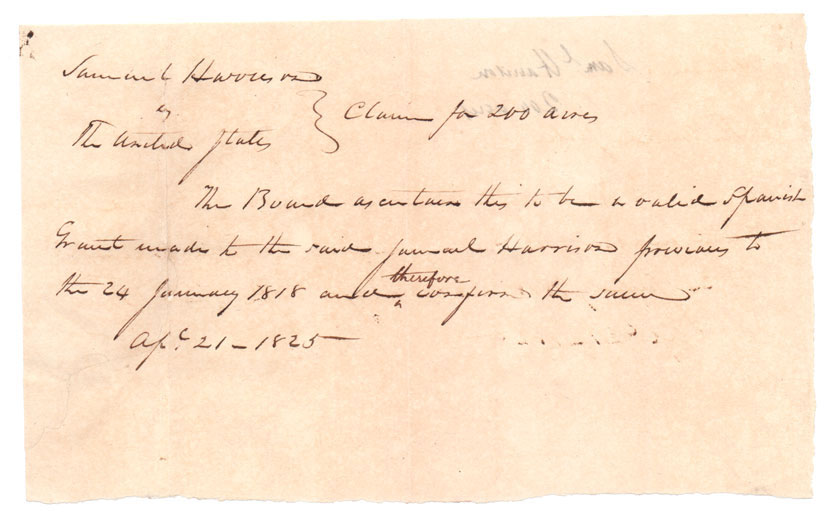 Samuel Harrison
vs } Claim for 200 acres
The United States
The Board ascertain this to be a valid Spanish
Grant made to the said Samuel Harrison previous to
the 24 January 1818 and therefore confirm the same
Apl. 21 – 1825